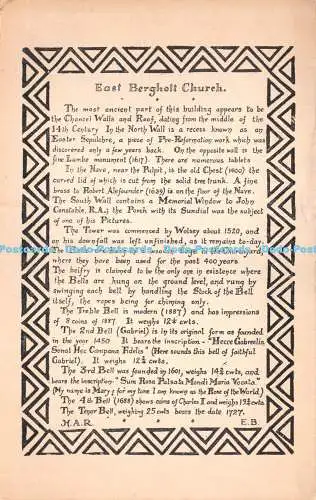 East Bergholt Church.
The most ancient part of this building appears to be
the Chancel Walls and Roof, dating from the middle of the
14th Century. In the North Wall is a recess known as an
Easter Sepulchre, a piece of Pre-Reformation work which was
discovered only a few years back. On the opposite wall is the
fine Lambe monument (1617). There are numerous tablets
In the Nave, near the Pulpit, is the old Chest (1400) the
curved lid of which is cut from the solid tree trunk. A fine
brass to Robert Alefounder (1639) is on the floor of the Nave.
The South Wall contains a Memorial Window to John
Constable, R.A.; the Porch with its Sundial was the subject
of one of his Pictures.
The Tower was commenced by Wolsey about 1520, and
on his downfall was left unfinished, as it remains to-day.
Cage in the Churchyard,
where they have been used for the past 400 years.
The belfry is claimed to be the only one in existence where
the Bells are hung on the ground level, and rung by
swinging each bell by handling the Stock of the Bell
itself, the ropes being for chiming only.
The Treble Bell is modern (1887) and has impressions
of 8 coins of 1887. It weighs cwts.
The 2nd Bell (Gabriel) is in its original form as founded
in the year 1450. It bears the inscription - "Hecce Gabreelis
Sonat Hec Campana Fidelis" (Here sounds this bell of faithful
Gabriel). It weighs cwts.
The 3rd Bell was founded in 1601, weighs cwts, and
bears the inscription - "Sum Rosa Pulsata Mondi Maria Vocata"
(My name is Mary; for my tone I am known as the Rose of the World)
The 4th Bell (1688) shows coins of Charles II and weighs cwts
The Tenor Bell, weighing 25 cwts bears the date 1727.
M.A.R. E.B.